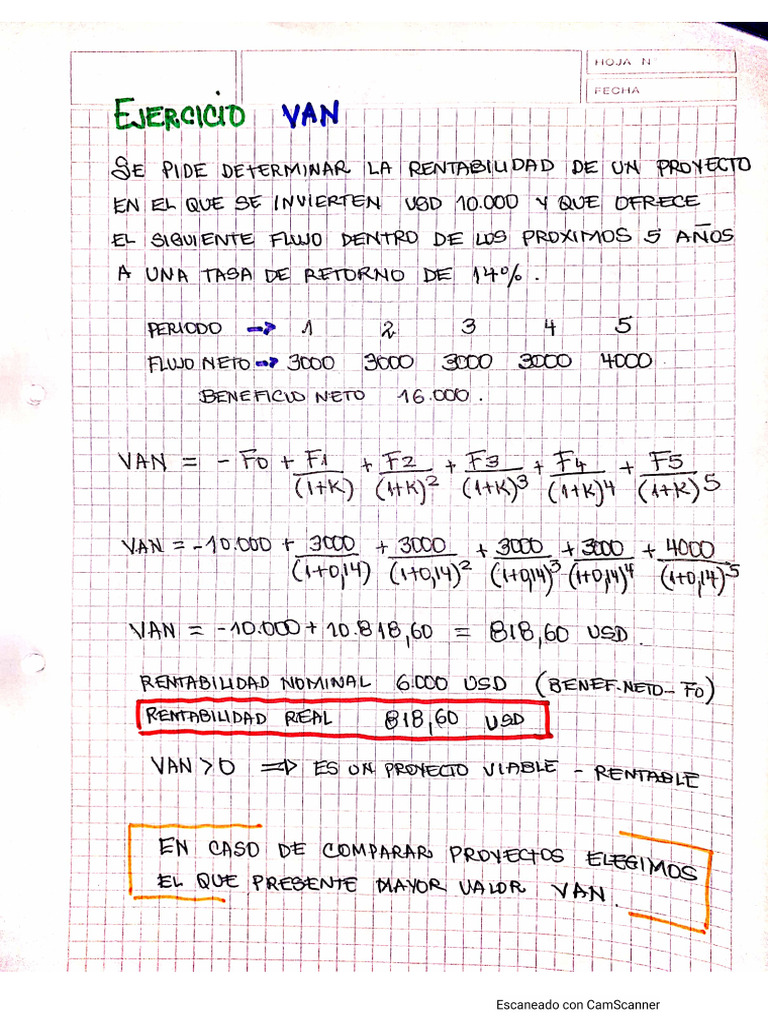 HOJA N°
FECHA
EJERCICIO VAN
SE PIDE DETERMINAR LA RENTABILIDAD DE UN PROYECTO
EN EL QUE SE INVIERTEN USD 10.000 Y QUE OFRECE
EL SIGUIENTE FLUJO DENTRO DE LOS PROXIMOS 5 AÑOS
A UNA TASA DE RETORNO DE 14%.
PERIODO → 1 2 3 4 5
FLUJO NETO → 3000 3000 3000 3000 4000
BENEFICIO NETO 16.000.
VAN = - F0 + F1/(1+K) + F2/(1+K)² + F3/(1+K)³ + F4/(1+K)4 + F5/(1+K)5
VAN = -10.000 + 3000/(1+0,14) + 3000/(1+0,14)² + 3000/(1+0,14)³ + 3000/(1+0,14)⁴ + 4000/(1+0,14)⁵
VAN = -10.000 + 10.818,60 = 818,60 USD.
RENTABILIDAD NOMINAL 6.000 USD (BENEF.NETO - F0)
RENTABILIDAD REAL 818,60 USD
VAN > 0 ⇒ ES UN PROYECTO VIABLE - RENTABLE
EN CASO DE COMPARAR PROYECTOS ELEGIMOS
EL QUE PRESENTE MAYOR VALOR VAN.
Escaneado con CamScanner